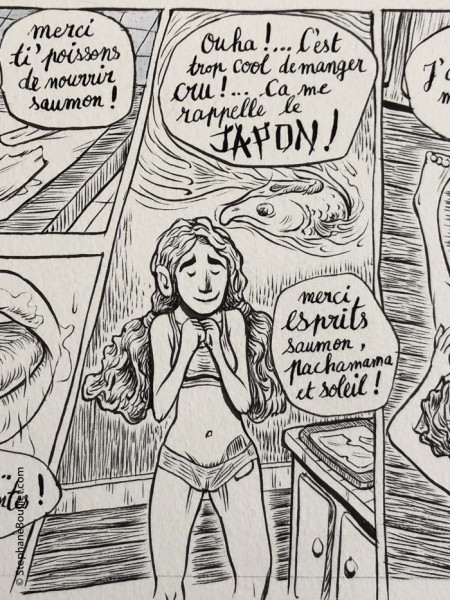 merci
ti' poissons
de nourrir
saumon !
Ouha !... C'est
trop cool de manger
cru !... Ca me
rappelle le
JAPON !
J'a
m
merci
esprits
saumon,
pachamama
et soleil !
© StephaneBouillet.com